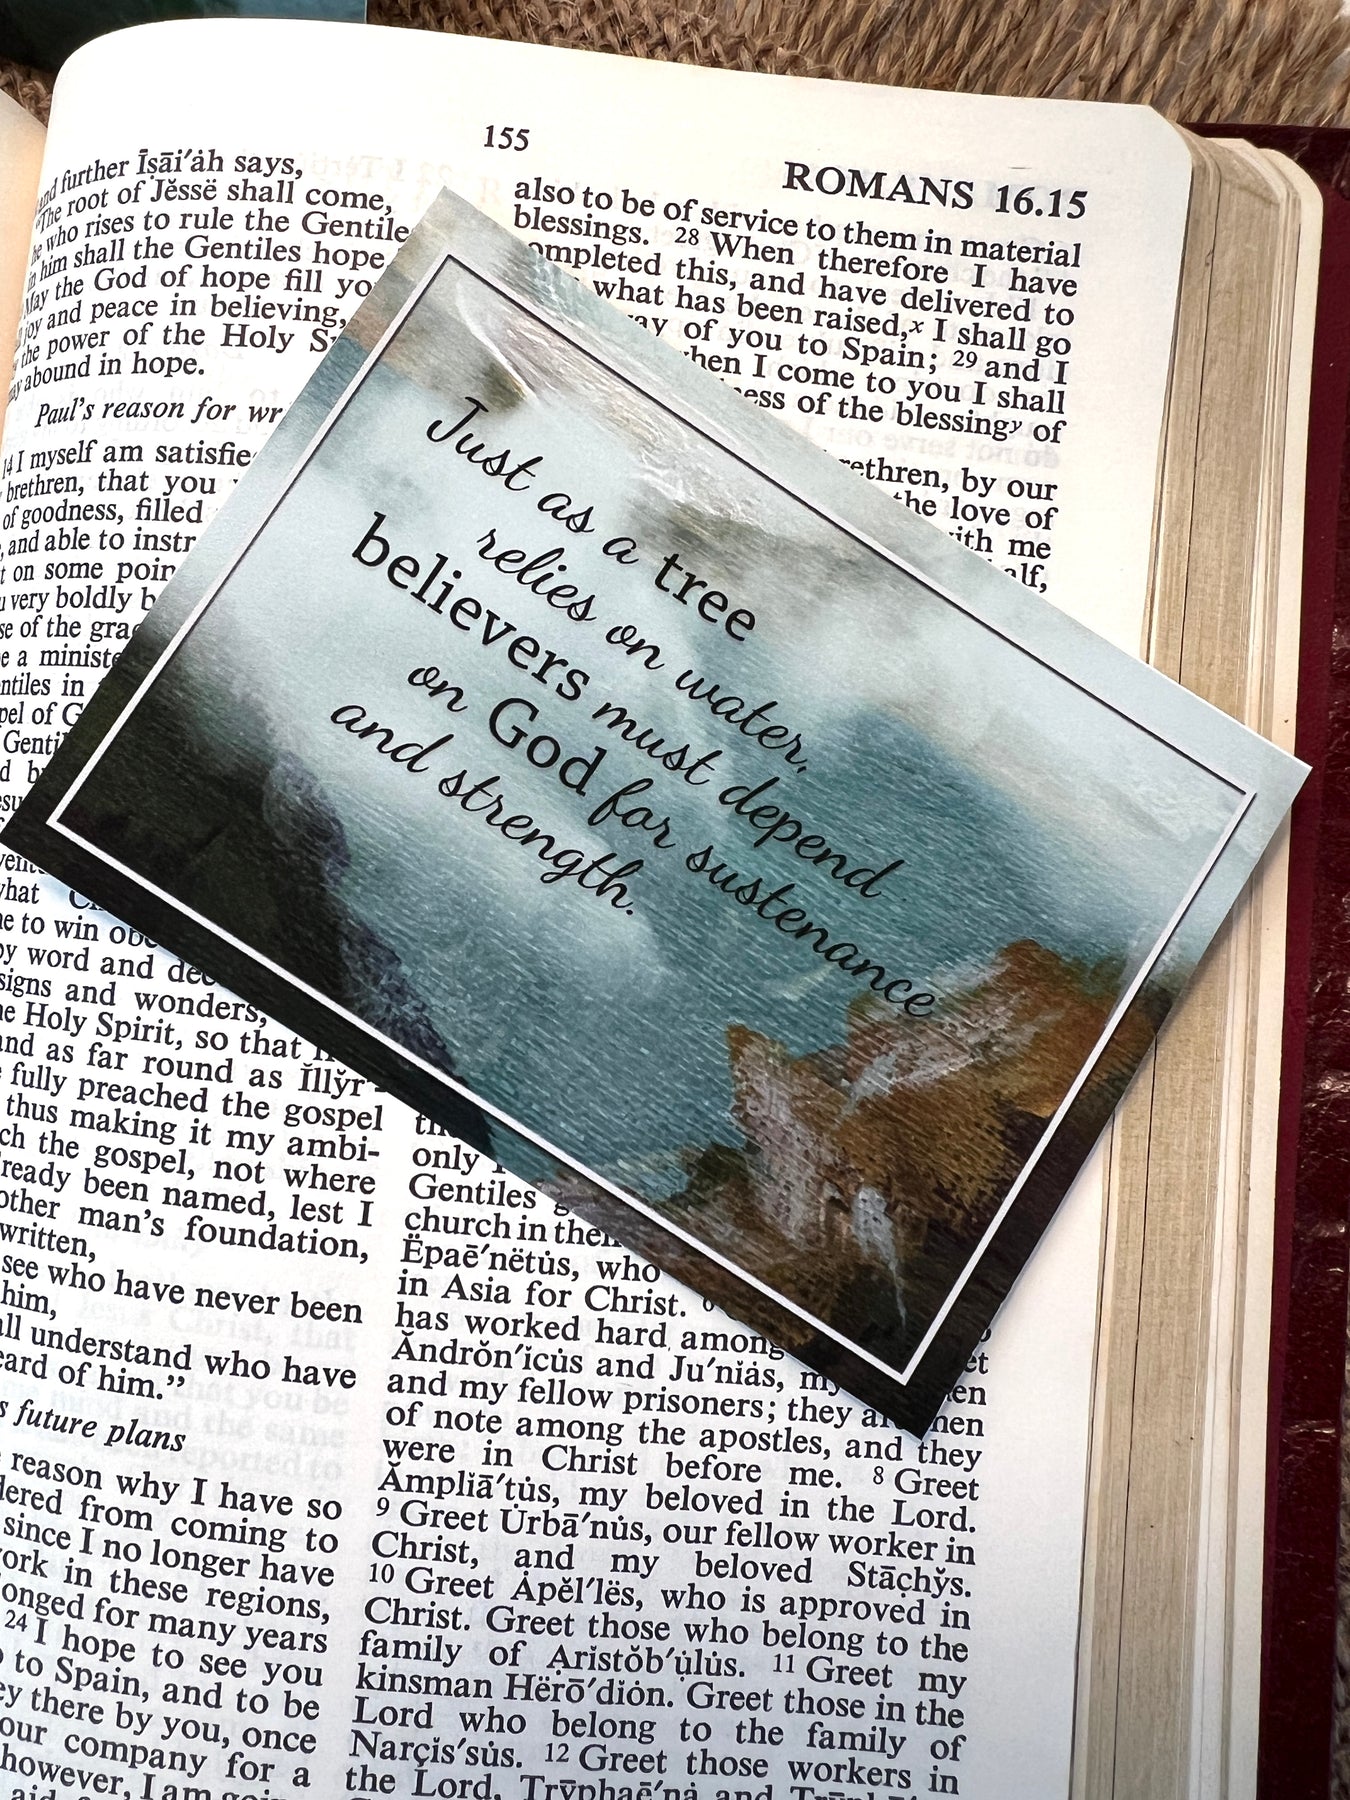 155
ROMANS 16.15
and further Īṣāi′ȧh says,
"The root of Jĕssë shall come,
he who rises to rule the Gentile
in him shall the Gentiles hope
May the God of hope fill yo
joy and peace in believing,
the power of the Holy
abound in hope.
Paul's reason for wr
14 I myself am satisfie
brethren, that you
of goodness, filled
, and able to instr
on some poin
very boldly b
of the gra
a ministe
ntiles in
pel of G
Genti
what
to win obe
by word and dee
signs and wonders,
Holy Spirit, so that
and as far round as Ĭllўr-
fully preached the gospel
thus making it my ambi-
ch the gospel, not where
ready been named, lest I
other man's foundation,
written,
see who have never been
him,
all understand who have
eard of him."
future plans
reason why I have so
dered from coming to
since I no longer have
work in these regions,
longed for many years
24 I hope to see you
to Spain, and to be
ey there by you, once
our company for a
however, I am
also to be of service to them in material
blessings. 28 When therefore I have
ompleted this, and have delivered to
what has been raised,x I shall go
ay of you to Spain; 29 and I
hen I come to you I shall
ess of the blessingy of
rethren, by our
the love of
ith me
alf,
Just as a tree
relies on water,
believers must depend
on God for sustenance
and strength.
only
Gentiles
church in their
Ëpaē′nëtu̇s, who
in Asia for Christ.
has worked hard among
Ăndrŏn′ĭcu̇s and Ju′nĭȧs, my
and my fellow prisoners; they are men
of note among the apostles, and they
were in Christ before me. 8 Greet
Ămplĭā′tu̇s, my beloved in the Lord.
9 Greet U̇rbā′nu̇s, our fellow worker in
Christ, and my beloved Stāc̣hўs.
10 Greet Ȧpĕl′lës, who is approved in
Christ. Greet those who belong to the
family of Ạrĭstŏb′ụlu̇s. 11 Greet my
kinsman Hërō′dĭȯn. Greet those in the
Lord who belong to the family of
Narçĭs′su̇s. 12 Greet those workers in
the Lord, Trȳphaē′nȧ and